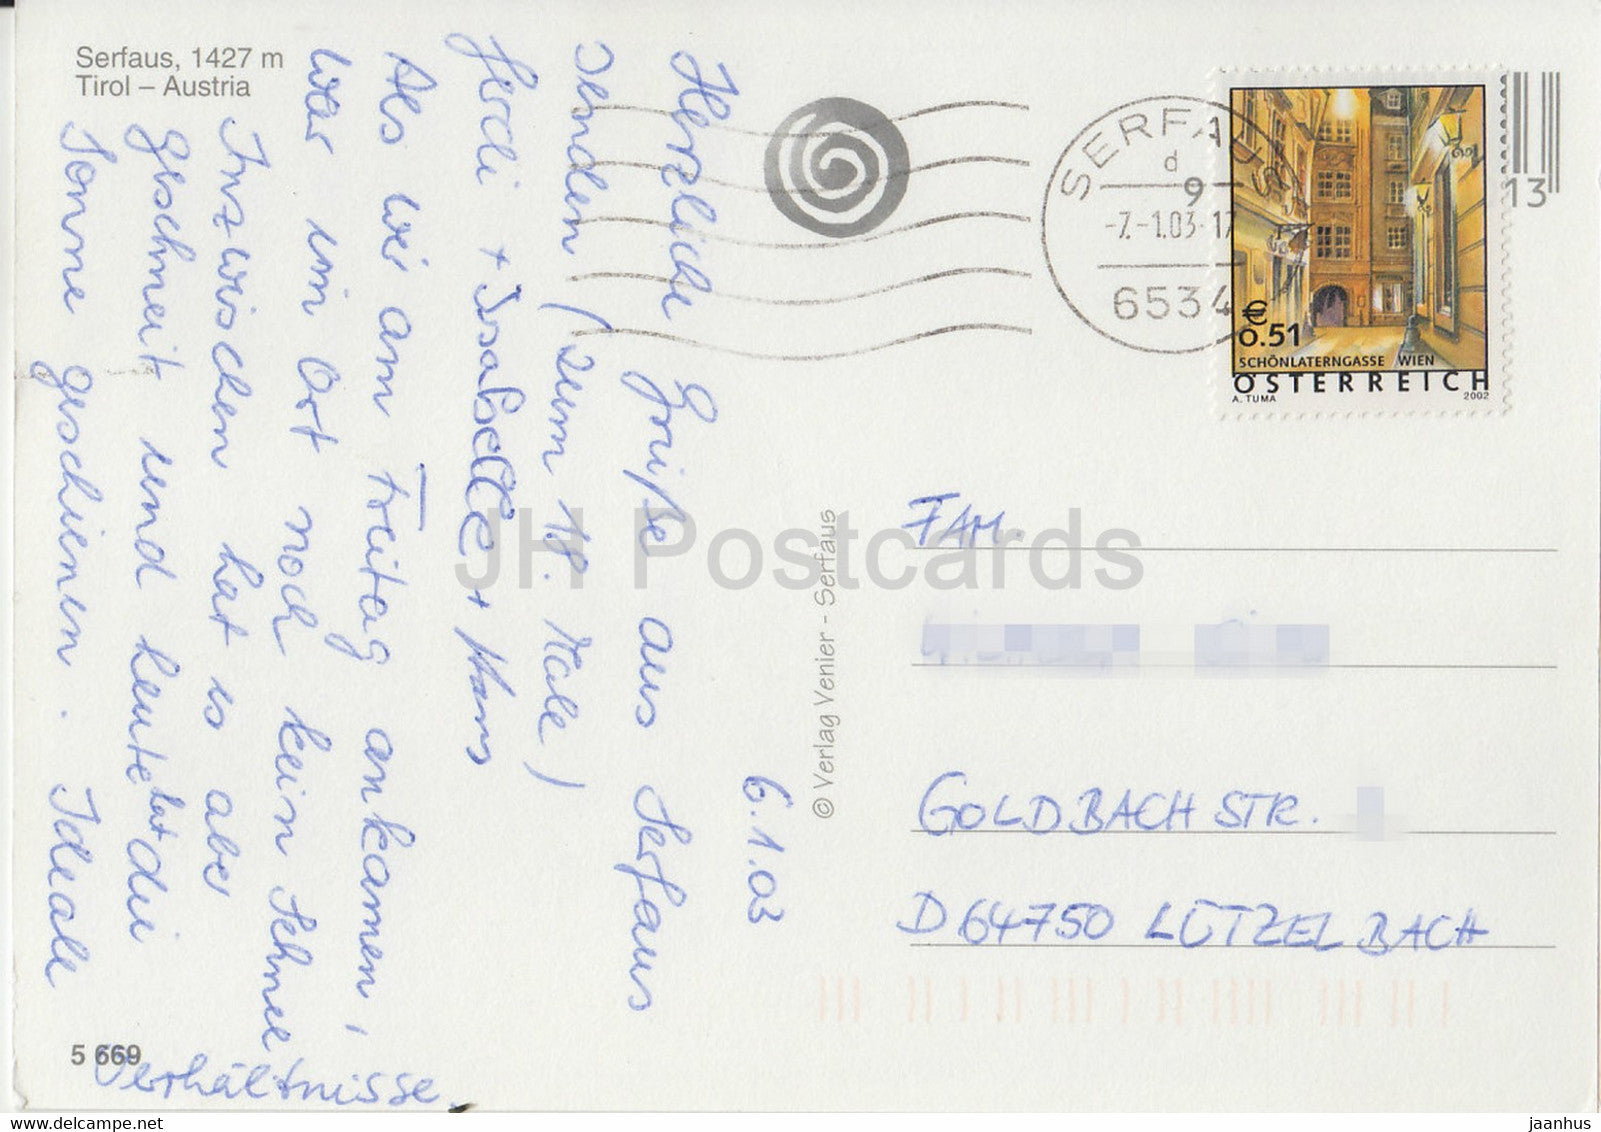 Serfaus, 1427 m
Tirol – Austria
6.1.03
Herzliche Grüße aus Serfaus
senden (zum 18. Male)
Gerdi + Isabelle + Hans
Als wir am Freitag ankamen,
war im Ort noch kein Schnee
Inzwischen hat es aber
geschneit und heute hat die
Sonne geschienen. Ideale
Verhältnisse.
5 669
© Verlag Venier - Serfaus
SERFAUS
d
9
-7.-1.03-17
6534
13
€
0.51
SCHÖNLATERNGASSE WIEN
ÖSTERREICH
A. TUMA 2002
FAM.
GOLDBACHSTR.
D 64750 LÜTZELBACH
JH Postcards
www.delcampe.net
jaanhus